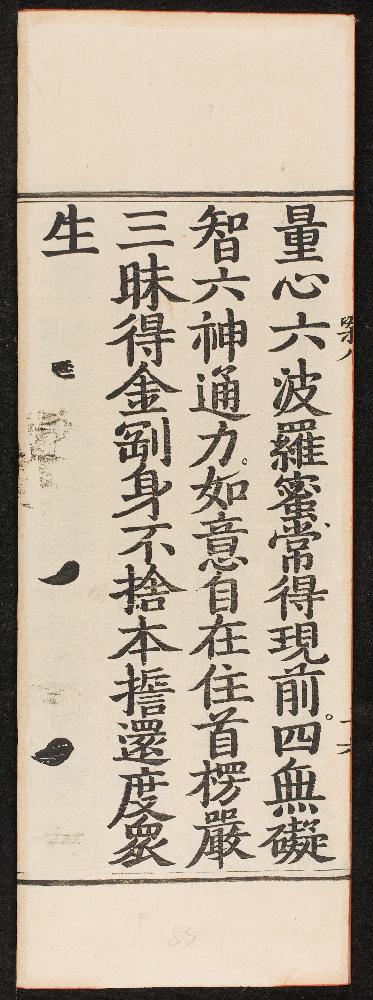 量心六波羅蜜常得現前。四無礙
智六神通力。如意自在住首楞嚴
三昧得金剛身不捨本擔還度衆
生